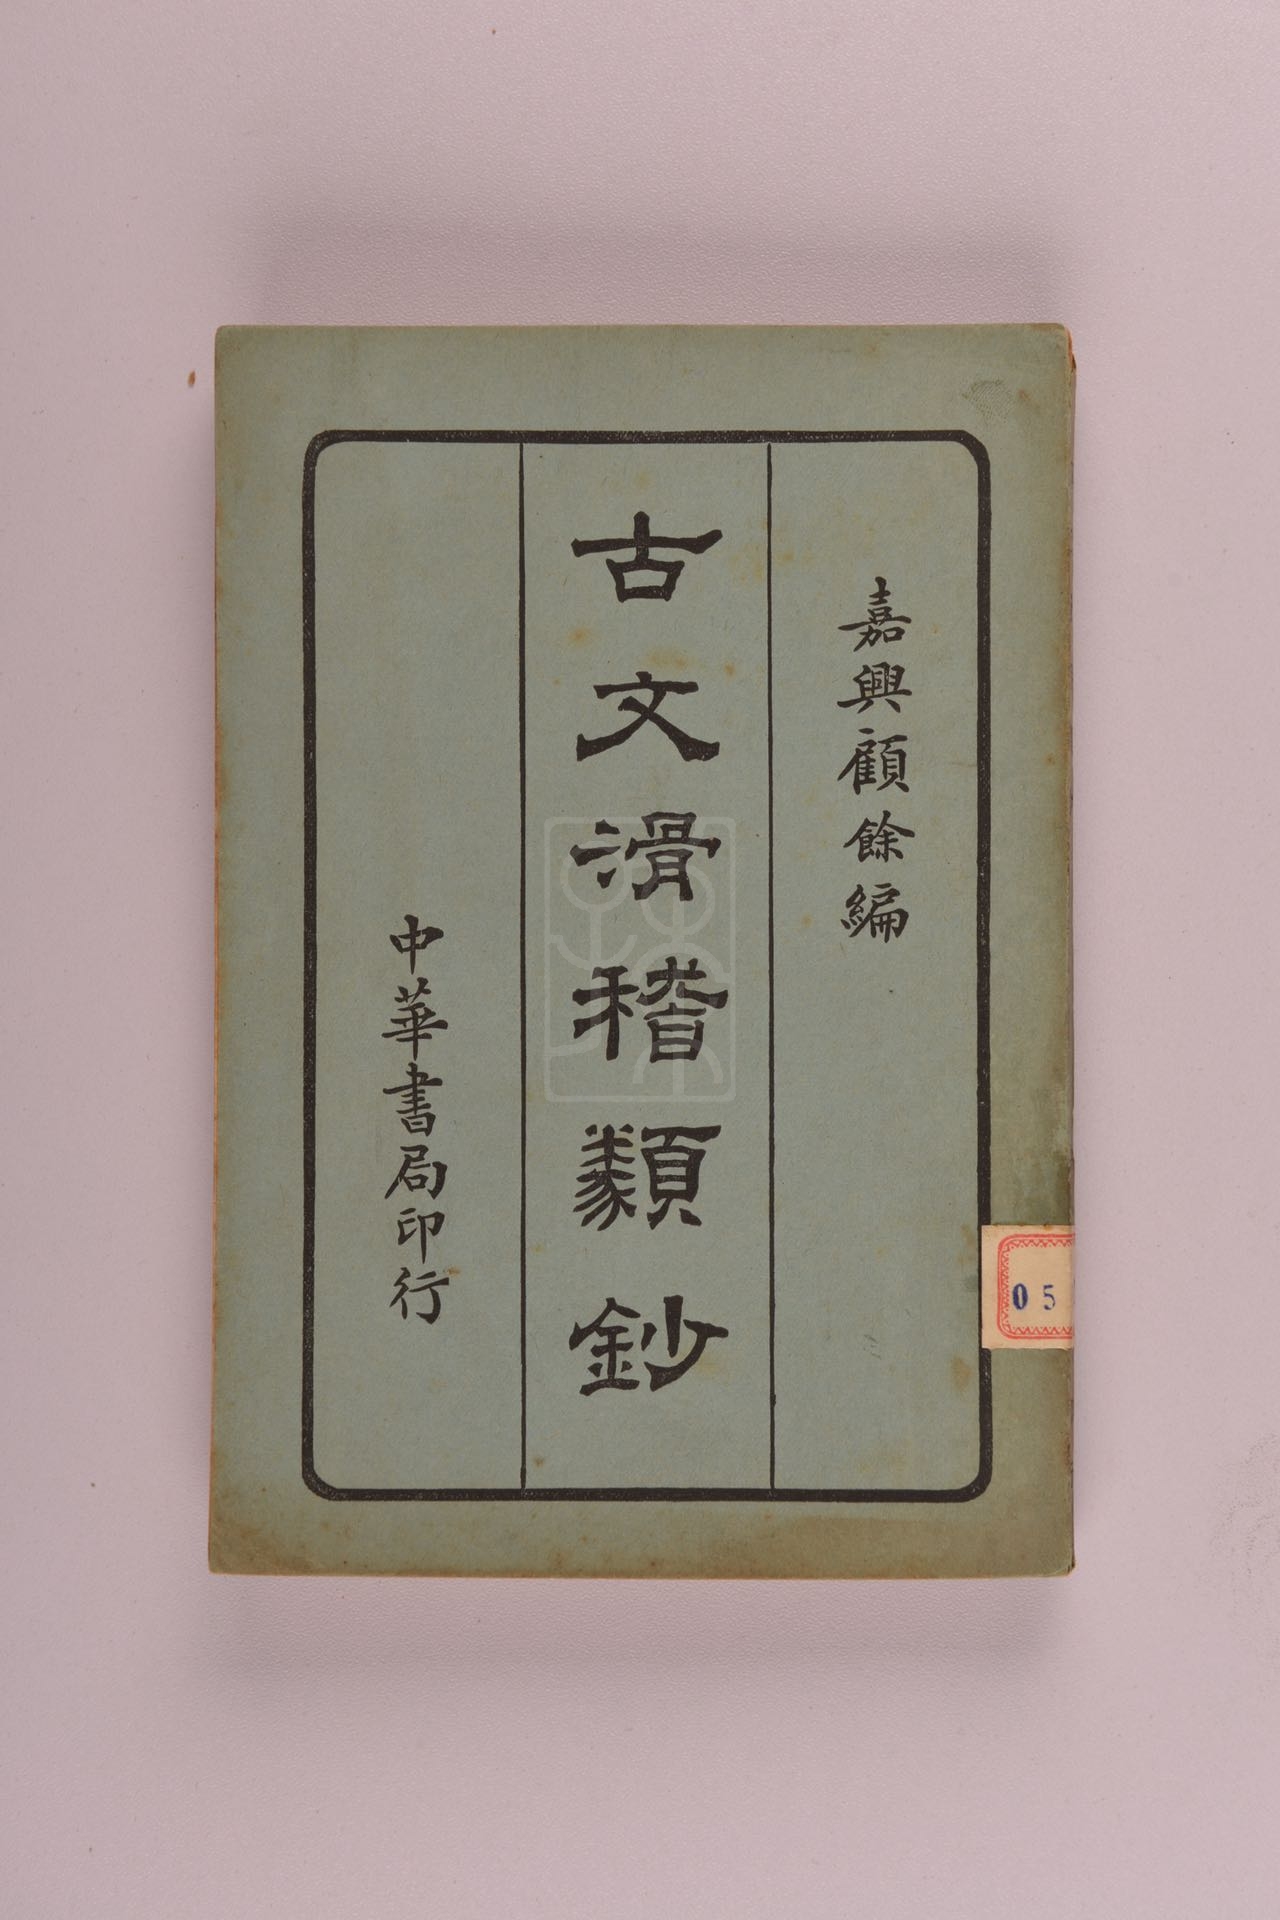 嘉興顧餘編
古文滑稽類鈔
中華書局印行
05